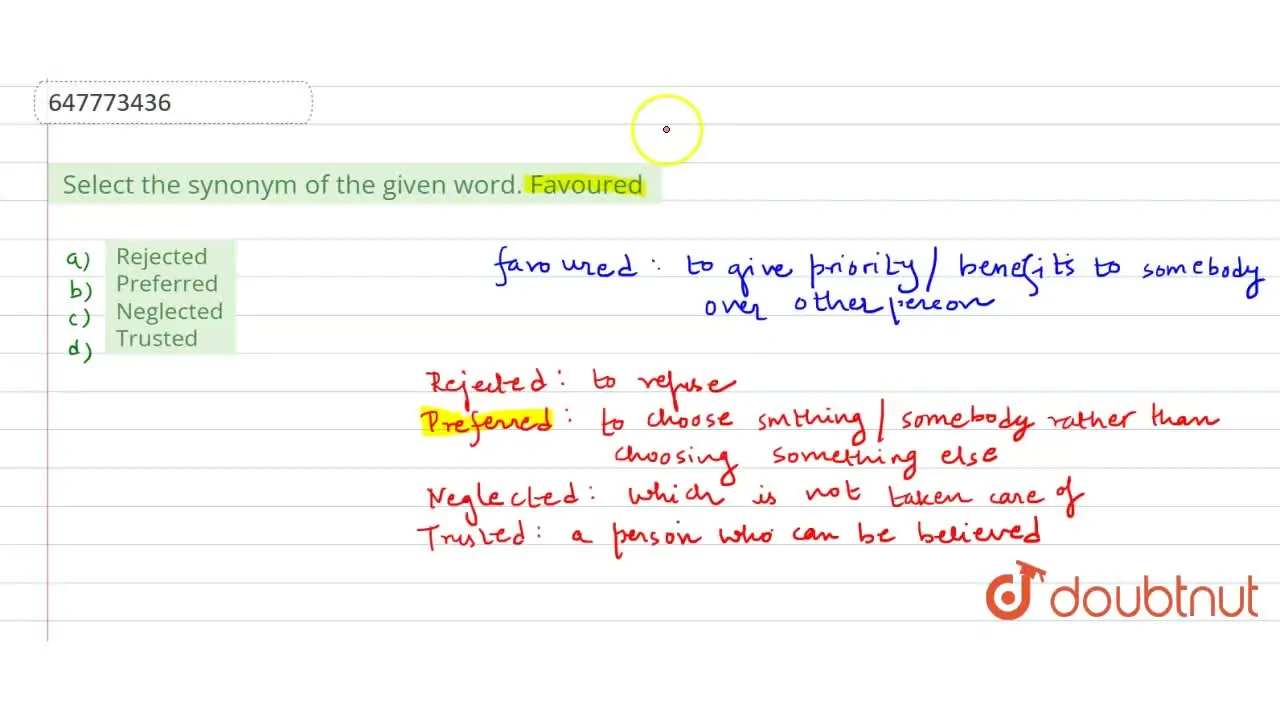 647773436
Select the synonym of the given word. Favoured
a) Rejected
b) Preferred
c) Neglected
d) Trusted
favoured : to give priority/ benefits to somebody
over other person
Rejected : to refuse
Preferred : to choose smthing/ somebody rather than
choosing something else
Neglected : which is not taken care of
Trusted : a person who can be believed
doubtnut